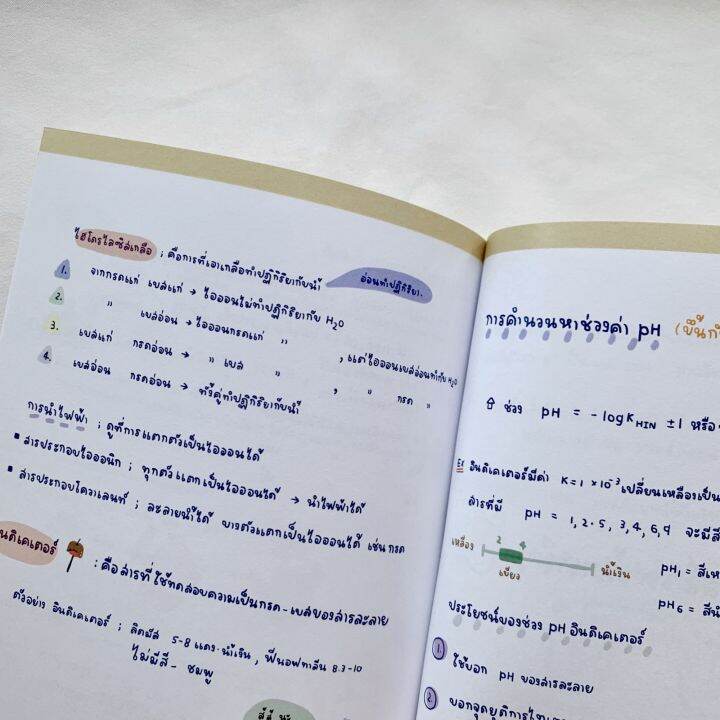 ไฮโดรไลซิสเกลือ ; คือการที่เอาเกลือทำปฏิกิริยากับน้ำ
อ่อนทำปฏิกิริยา.
1. จากกรดแก่ เบสแก่ → ไอออนไม่ทำปฏิกิริยากับ H₂O
2. " เบสอ่อน → ไอออนกรดแก่ " , แต่ไอออนเบสอ่อนทำกับ H₂O
3. เบสแก่ กรดอ่อน → " เบส " , " กรด "
4. เบสอ่อน กรดอ่อน → ทั้งคู่ทำปฏิกิริยากับน้ำ
การนำไฟฟ้า ; ดูที่การแตกตัวเป็นไอออนได้
▪ สารประกอบไอออนิก ; ทุกตัวแตกเป็นไอออนได้ → นำไฟฟ้าได้
▪ สารประกอบโควาเลนท์ ; ละลายน้ำได้ บางตัวแตกเป็นไอออนได้ เช่น กรด
อินดิเคเตอร์ : คือสารที่ใช้ทดสอบความเป็นกรด-เบสของสารละลาย
ตัวอย่าง อินดิเคเตอร์ ; ลิตมัส 5-8 แดง-น้ำเงิน , ฟีนอฟทาลีน 8.3-10
ไม่มีสี - ชมพู
การคำนวนหาช่วงค่า pH
ช่วง pH = -log KHIN ±1 หรือ
Ex อินดิเคเตอร์มีค่า K = 1 × 10⁻³ เปลี่ยนเหลืองเป็น
สารที่มี pH = 1, 2.5, 3, 4, 6, 9 จะมี
เหลือง 2 4 น้ำเงิน
เขียว
pH₁ =
pH₆ =
ประโยชน์ของช่วง pH อินดิเคเตอร์
1. ใช้บอก pH ของสารละลาย
2. บอกจุดยุติการ